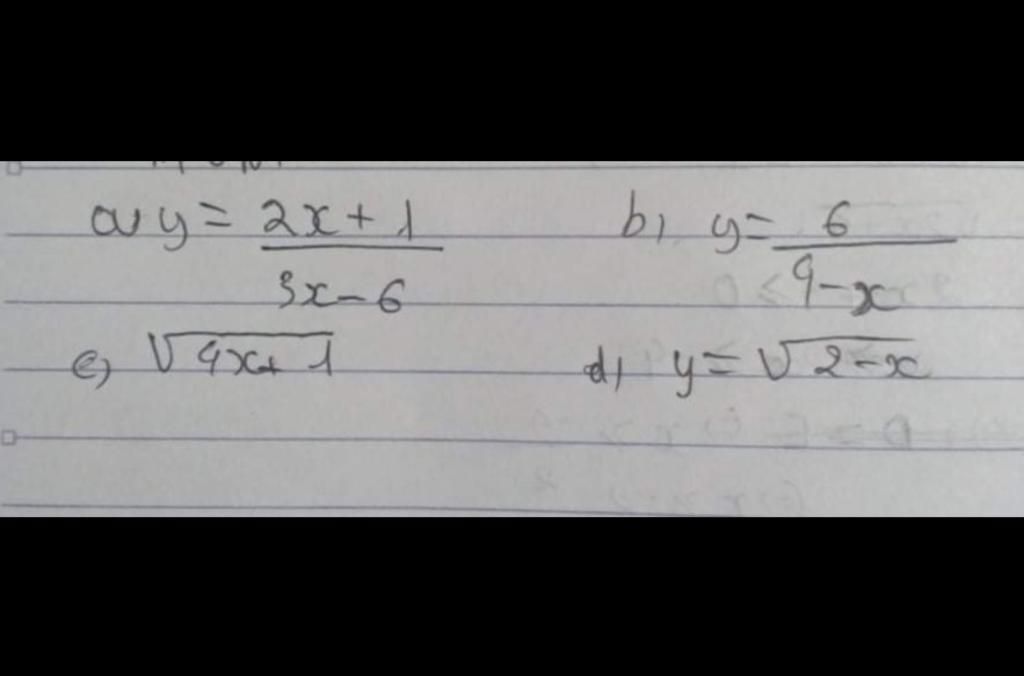 a) y = 2x + 1 / 3x - 6 b) y = 6 / 9 - x
c) √4x + 1 d) y = √2 - x